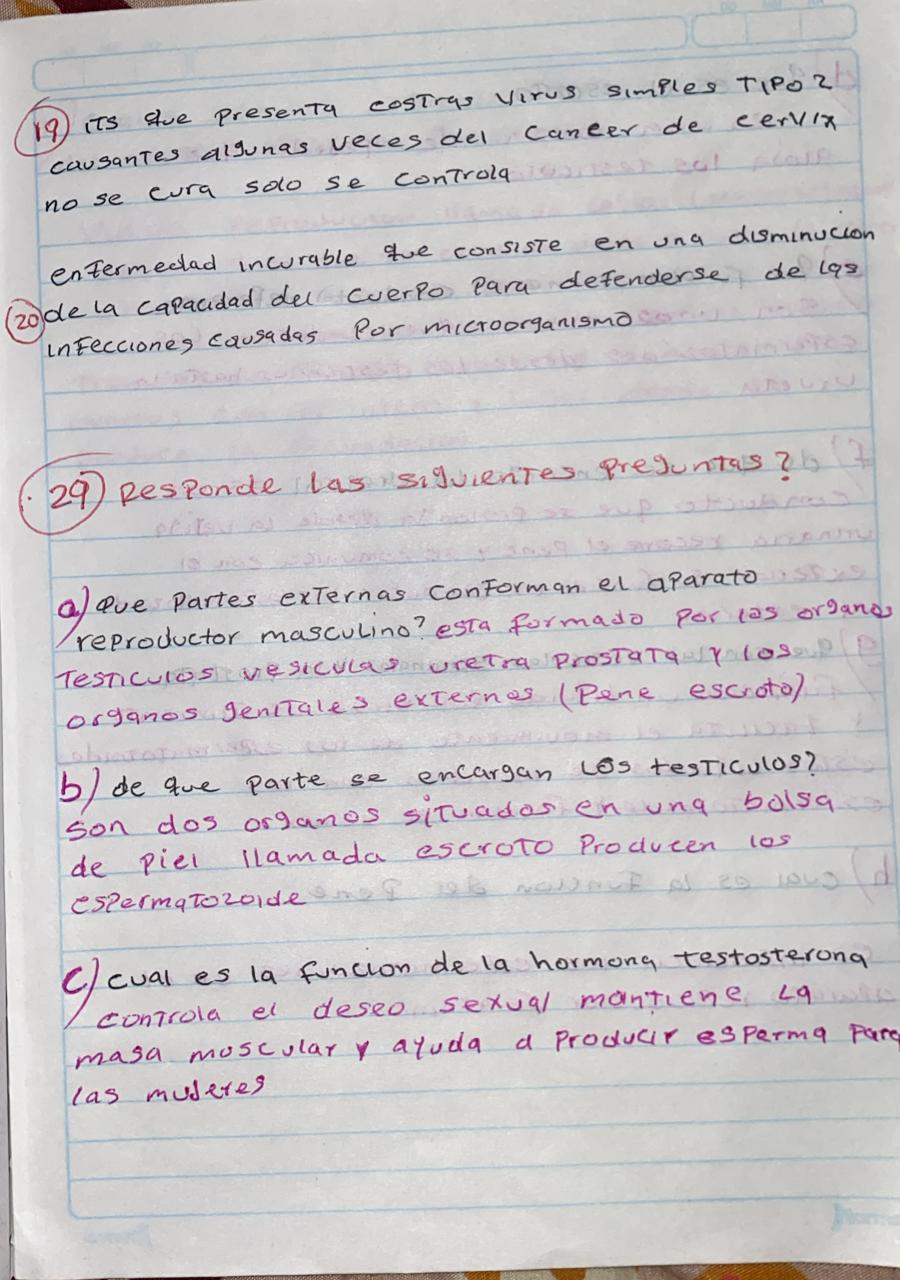 19) ITS que presenta costras virus simples TIPO 2
causantes algunas veces del cancer de cervix
no se cura solo se controla
enfermedad incurable que consiste en una disminucion
20) de la capacidad del cuerpo para defenderse de las
infecciones causadas por microorganismo
29) Responde las siguientes preguntas?
a) que partes externas conforman el aparato
reproductor masculino? esta formado por los organos
testiculos vesiculas uretra prostata y los
organos genitales externos (pene escroto)
b) de que parte se encargan los testiculos?
son dos organos situados en una bolsa
de piel llamada escroto producen los
espermatozoide
c) cual es la funcion de la hormona testosterona
controla el deseo sexual mantiene la
masa moscular y ayuda a producir esperma para
las muderes